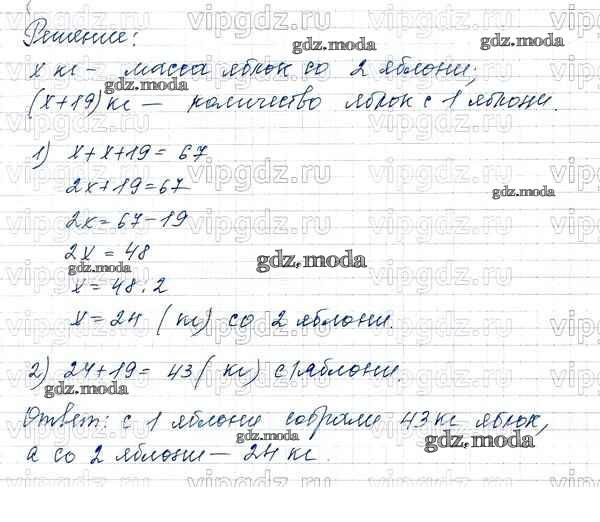 Решение:
x кг - масса яблок со 2 яблони;
(x+19) кг - количество яблок с 1 яблони.
1) x+x+19=67
2x+19=67
2x=67-19
2x=48
x=48:2
x=24 (кг) со 2 яблони.
2) 24+19=43 (кг) с 1 яблони.
Ответ: с 1 яблони собрали 43 кг яблок,
а со 2 яблони - 24 кг.
vipgdz.ru
gdz.moda